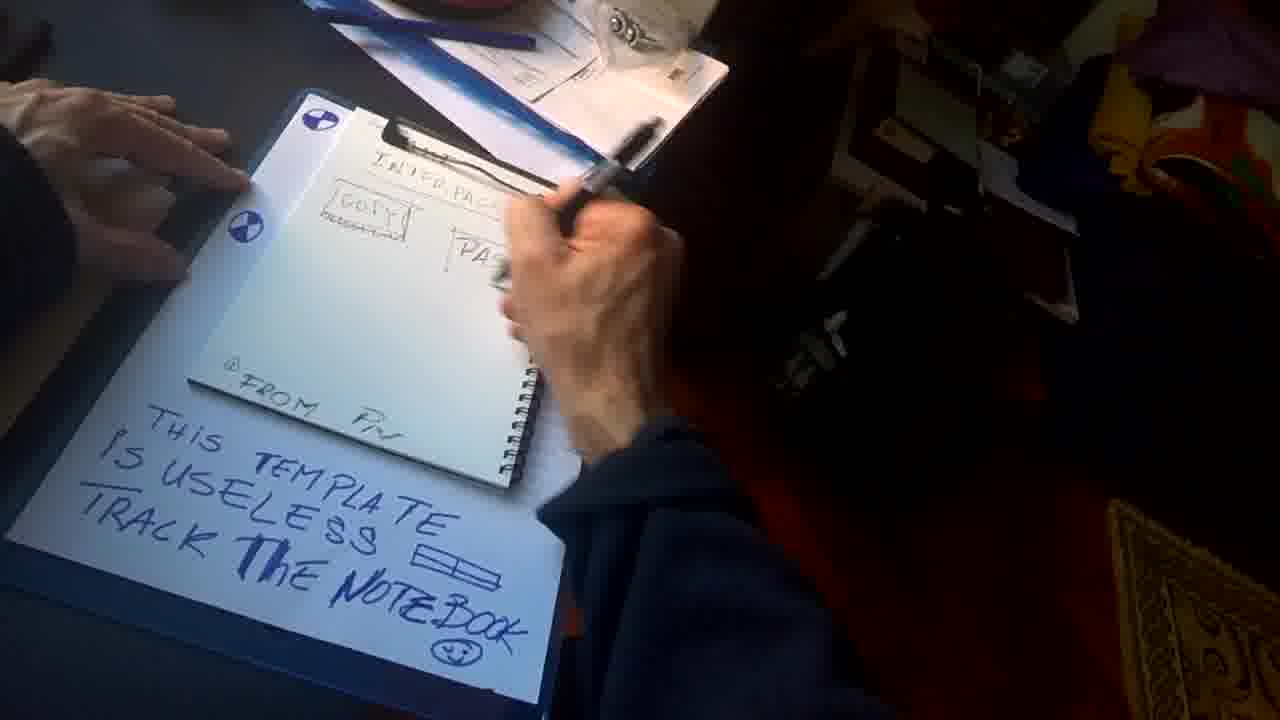 INTERPAC
COPY
PAS
@FROM PN
THIS TEMPLATE
IS USELESS
TRACK THE NOTEBOOK